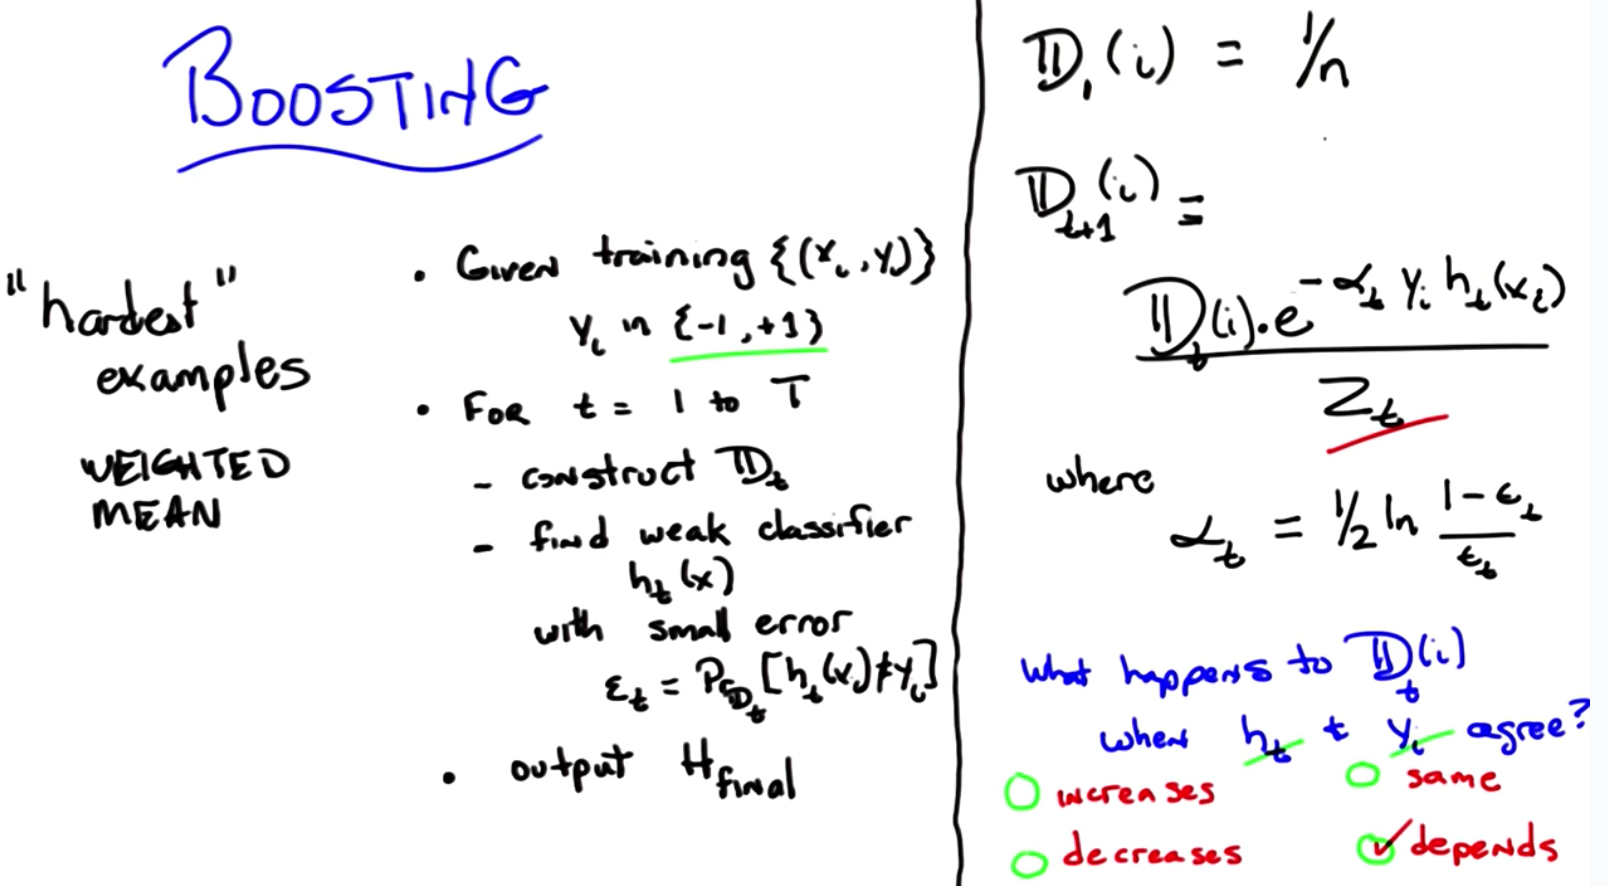 BOOSTING
"hardest"
examples
WEIGHTED
MEAN
• Given training {(xᵢ, yᵢ)}
yᵢ in {-1, +1}
• For t = 1 to T
- construct 𝔻ₜ
- find weak classifier
hₜ(x)
with small error
εₜ = Pr_𝔻ₜ [hₜ(xᵢ) ≠ yᵢ]
• output H_final
𝔻₁(i) = 1/n
𝔻ₜ₊₁(i) =
𝔻ₜ(i)·e^(-αₜ yᵢ hₜ(xᵢ))
Zₜ
where
αₜ = 1/2 ln (1-εₜ)/εₜ
What happens to 𝔻ₜ(i)
when hₜ + yᵢ agree?
increases
same
decreases
✓ depends